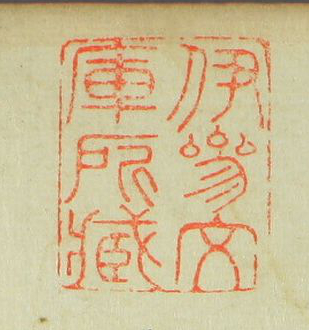 伊參文
庫所藏